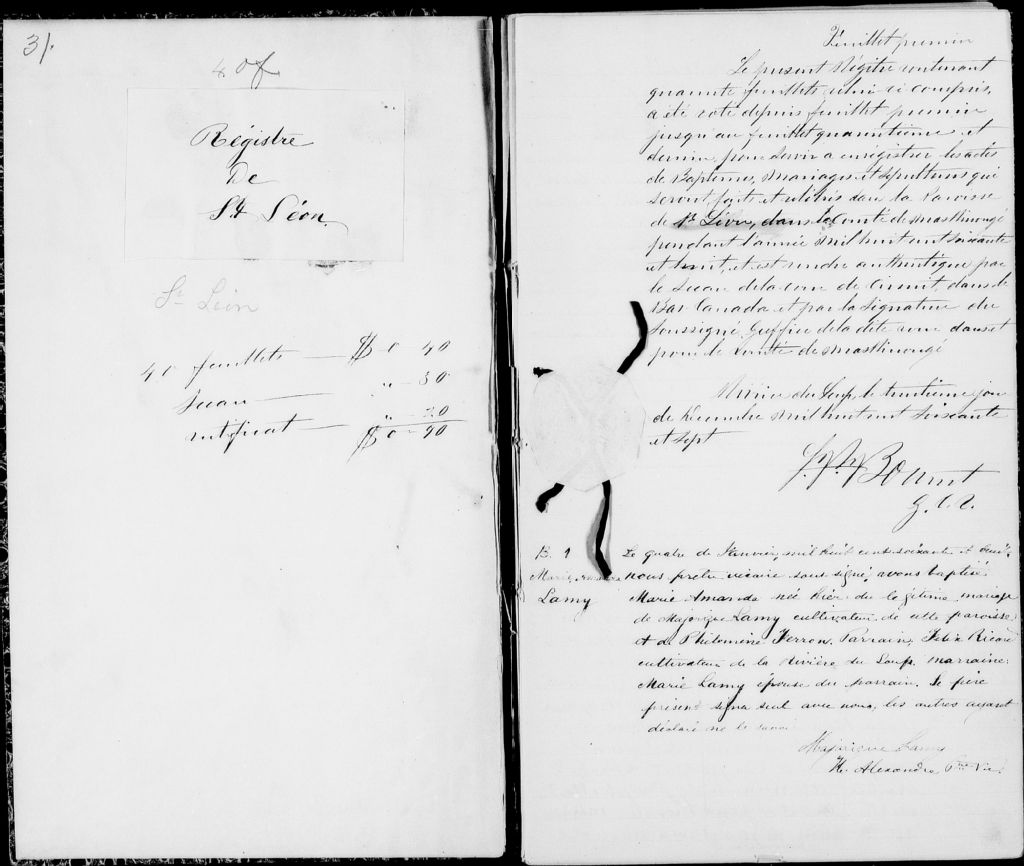 31.
40 f
Régistre
De
St Léon
St Léon
40 feuillets — $0-40
Sceau — " - 30
certificat — " - 20
$0-90
Feuillet premier
Le present Régitre contenant
quarante feuillets celui ci compris,
a été coté depuis feuillet premier
jusqu'au feuillet quarantieme et
dernier, pour servir a enrégistrer les actes
de Baptemes, Mariages et Sepultures qui
seront faits et célébrés dans la Paroisse
de St Léon, dans le Comté de Maskinongé
pendant l'année Mil huit cent soixante
et huit, et est rendre authentique par
le Sceau de la cour de Circuit, dans le
Bas Canada et par la Signature du
Soussigné Greffier de la dite cour dans et
pour le Comté de Maskinongé
Riviere du Loup le huitieme jour
de Décembre Mil huit cent soixante
et Sept
G. C. C.
B. 1
Marie Amanda
Lamy
Le quatre de Janvier, mil huit cent soixante et huit
nous pretre vicaire sous signé, avons baptisé
Marie Amanda née hier du légitime mariage
de Majorique Lamy cultivateur de cette paroisse
et de Philomène Ferron. Parrain, Felix Ricard
cultivateur de la Rivière du Loup. marraine
Marie Lamy épouse du parrain. Le père
présent signa seul avec nous, les autres ayant
déclaré ne le savoir
Majorique Lamy
H. Alexandre Ptre Vic.